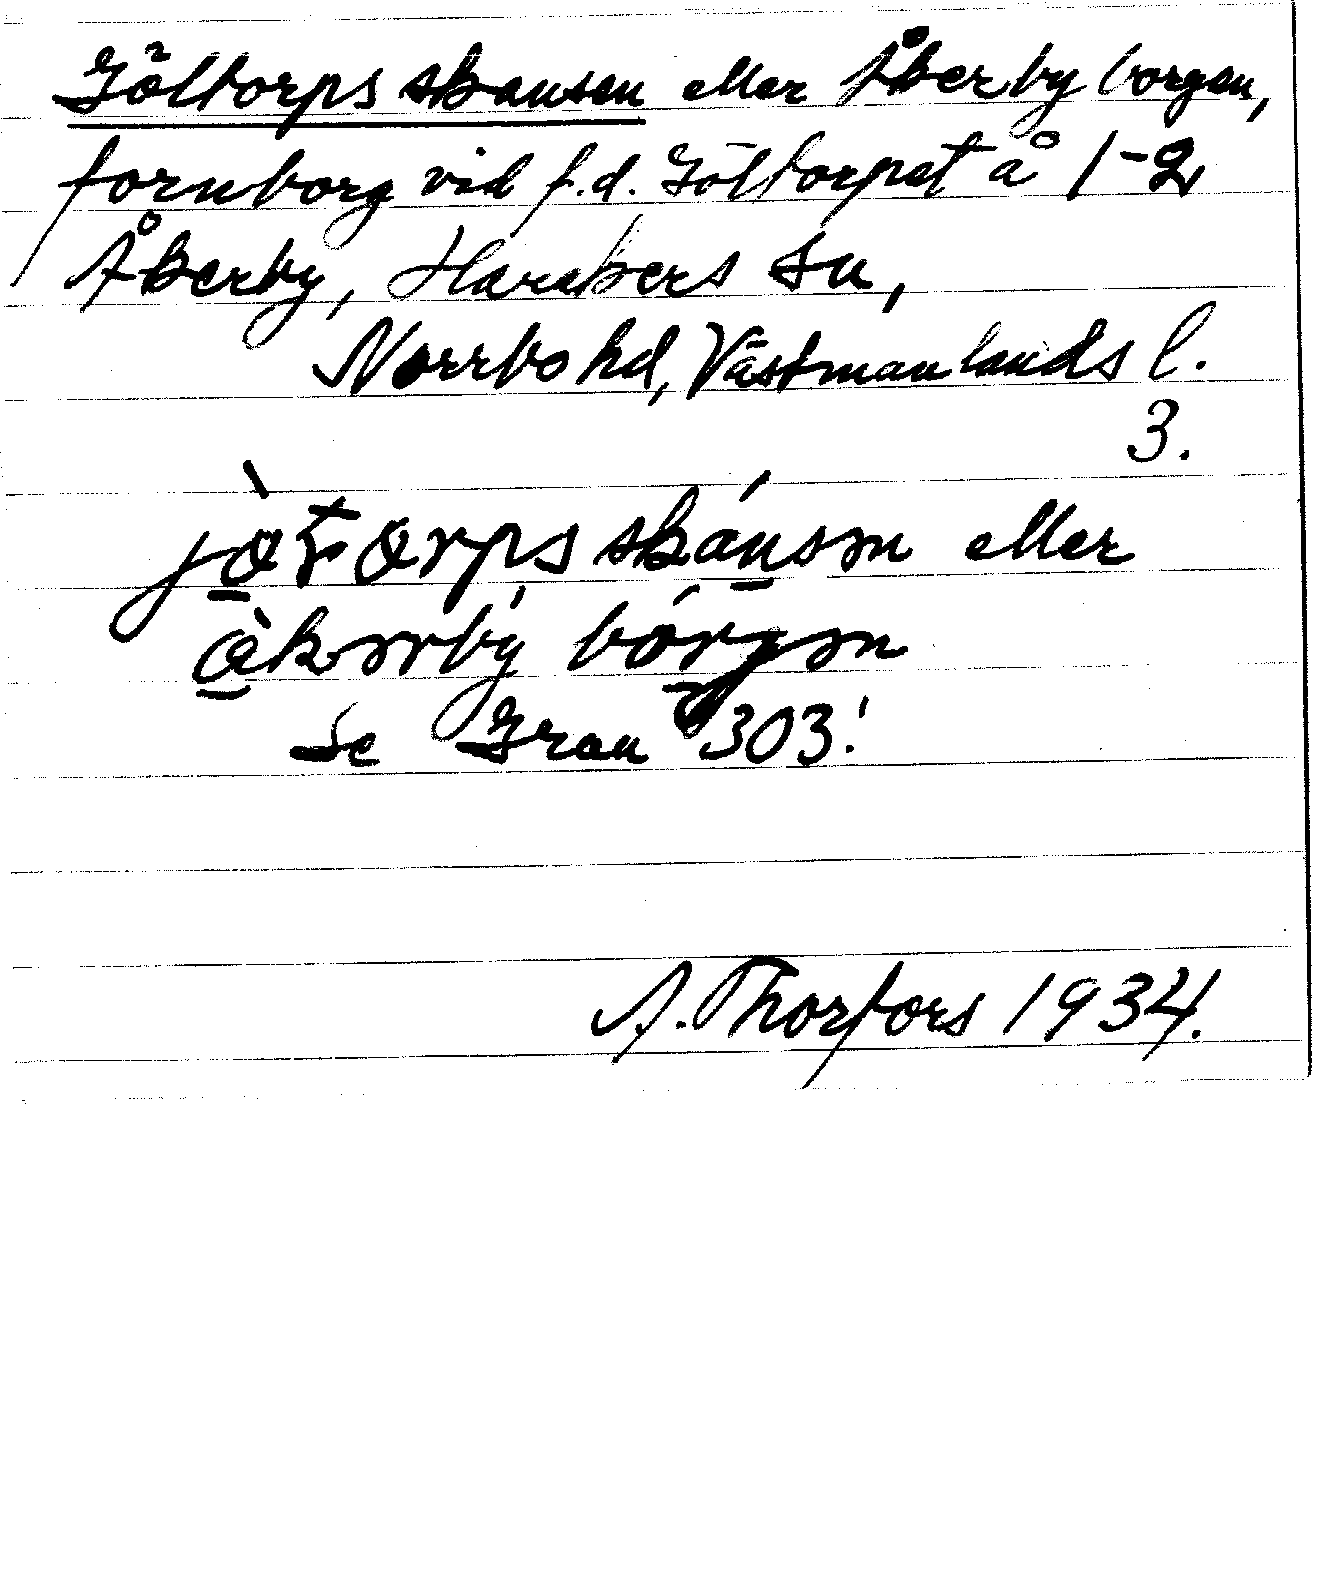 Göltorps skansen eller Åkerby borgen,
fornborg vid f.d. Göltorpet å 1-2
Åkerby, Harakers sn,
Norrbo hd, Västmanlands l.
3.
eller
Se Gran 303!
A. Thorfors 1934.